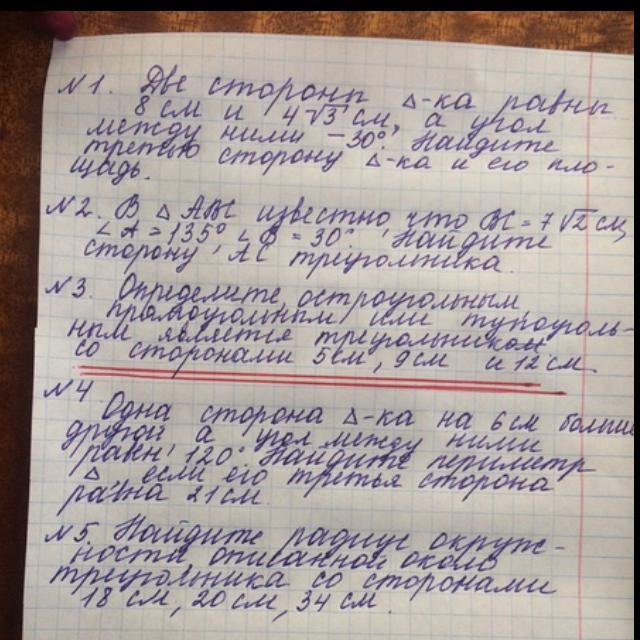 №1. Две стороны △-ка равны
8 см и 4√3 см, а угол
между ними – 30°. Найдите
третью сторону △-ка и его пло-
щадь.
№2. В △ ABC известно что BC = 7√2 см,
∠A = 135° ∠B = 30°. Найдите
сторону AC треуголтника.
№3. Определите остроугольным
прямоугольным или тупоуголь-
ным является треугольником
со сторонами 5см, 9см и 12 см.
№4
Одна сторона △-ка на 6 см больше
другой а угол между ними
равн 120°. Найдите периметр
△ если его третья сторона
равна 21 см.
№5. Найдите радиус окруж-
ности описанной около
треугольника со сторонами
18 см, 20 см, 34 см.